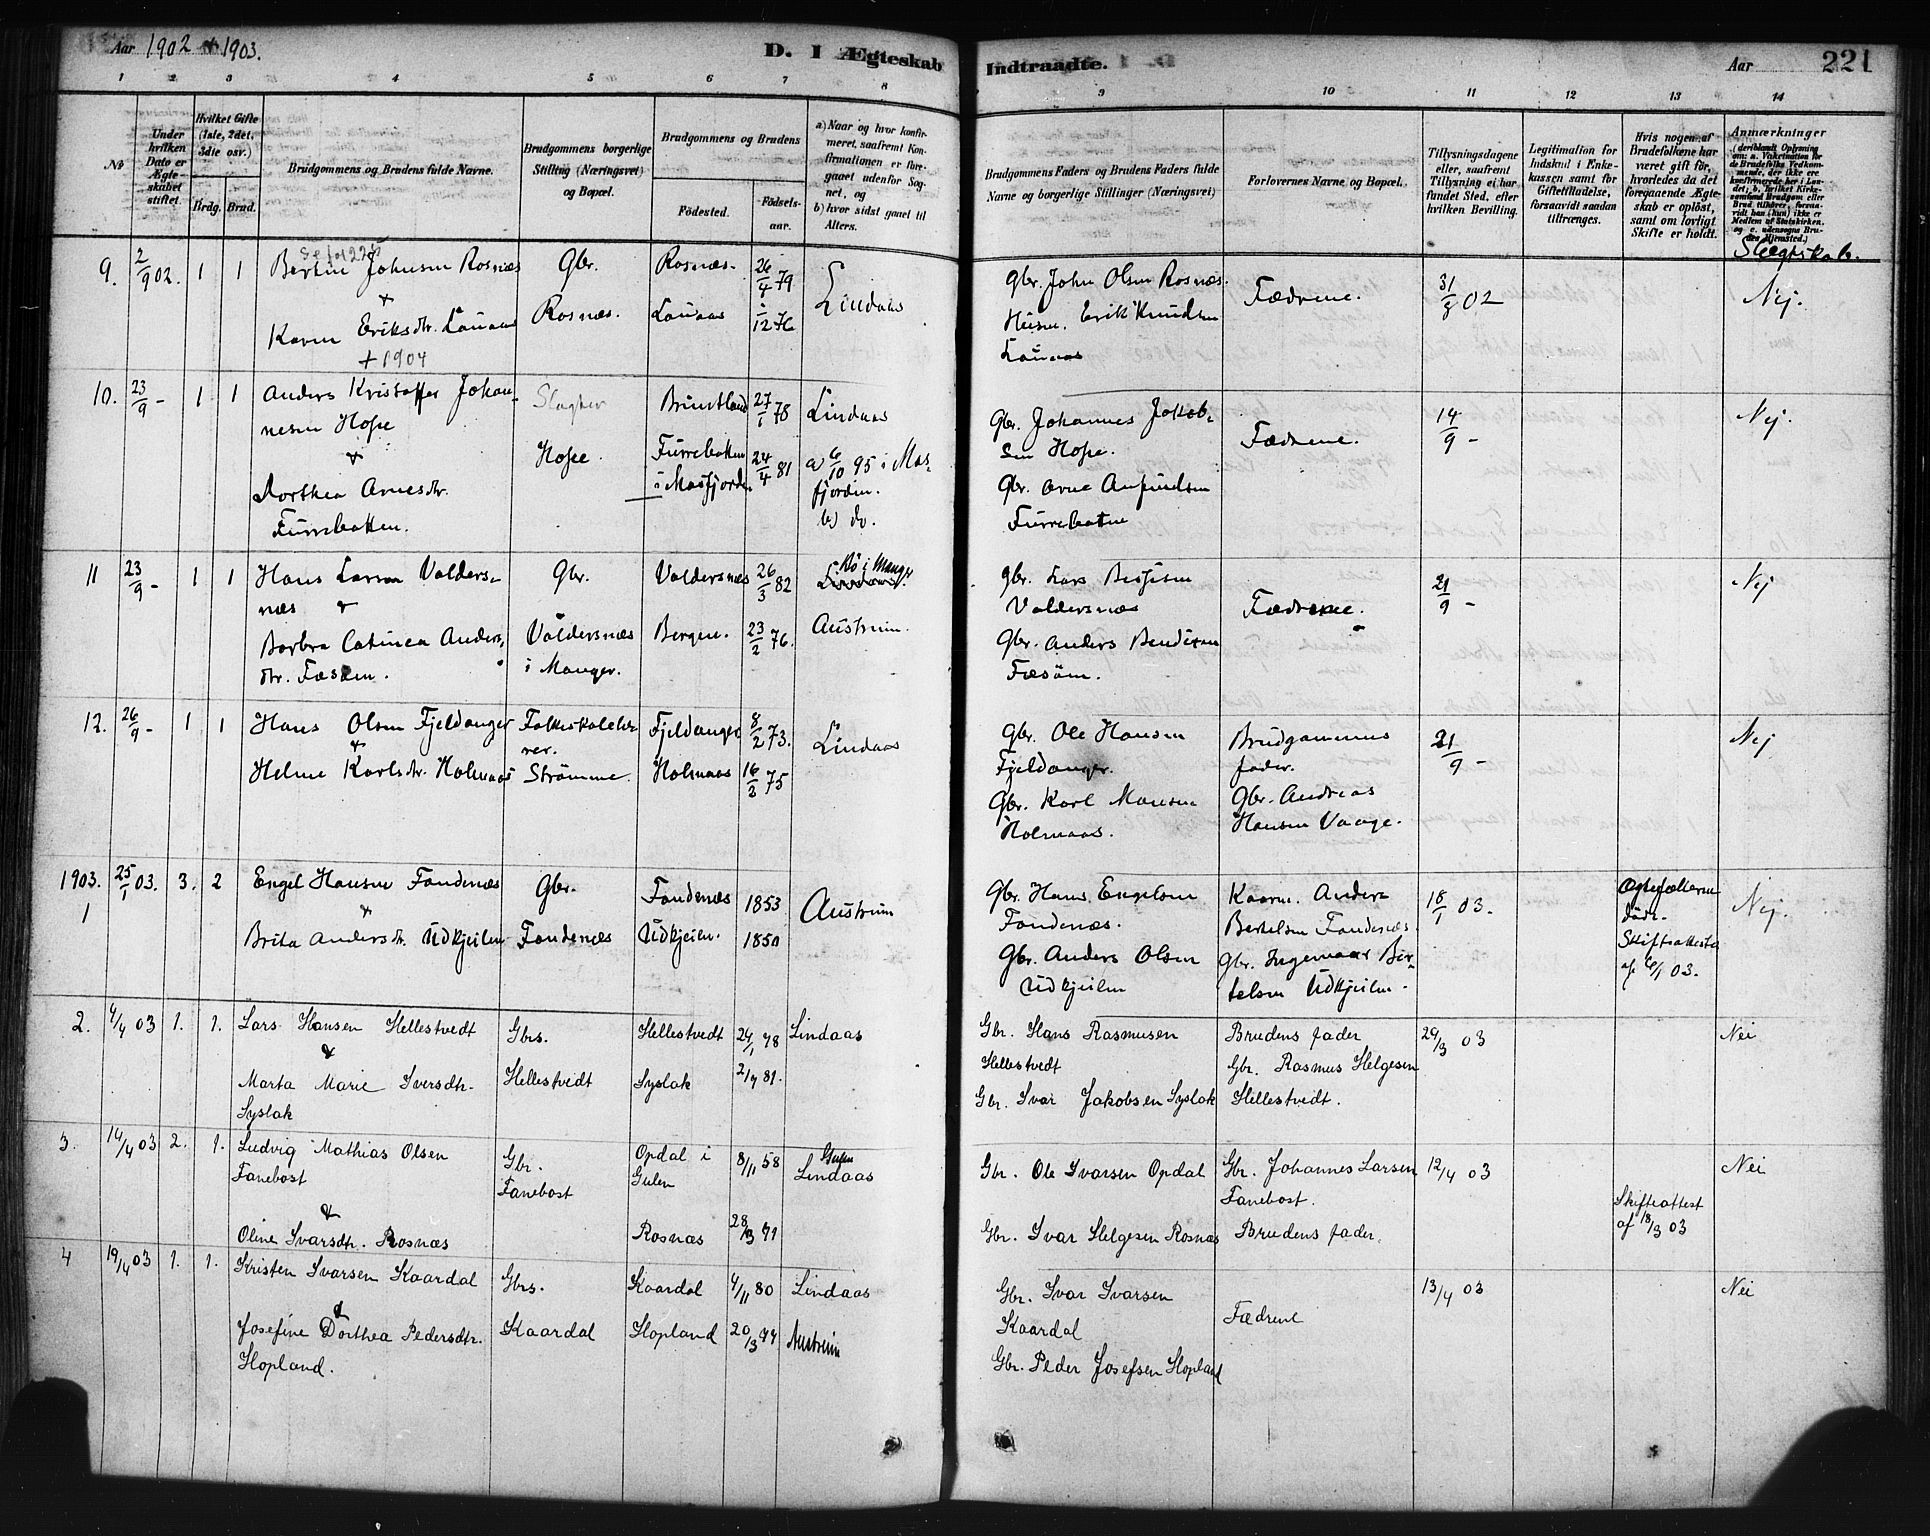 Aar 1902 & 1903.
D. I Ægteskab Indtraadte.
Aar 221
1 2 3 4 5 6 7 8 9 10 11 12 13 14
No
Under hvilken Dato er Ægteskabet stiftet.
Hvilket Gifte (1ste, 2det, 3die osv.)
Brdg. Brud.
Brudgommens og Brudens fulde Navne.
Brudgommens borgerlige Stilling (Næringsvei) og Bopæl.
Brudgommens og Brudens
Fødested.
Fødselsaar.
a) Naar og hvor konfirmeret, saafremt Konfirmationen er foregaaet udenfor Sognet, og
b) hvor sidst gaaet til Alters.
Brudgommens Faders og Brudens Faders fulde Navne og borgerlige Stillinger (Næringsvei)
Forlovernes Navne og Bopæl.
Tillysningsdagene eller, saafremt Tillysning ei har fundet Sted, efter hvilken Bevilling.
Legitimation for Indskud i Enkekassen samt for Giftetilladelse, forsaavidt saadan tiltrænges.
Hvis nogen af Brudefolkene har været gift før, hvorledes da det foregaaende Ægteskab er opløst, samt om lovligt Skifte er holdt.
Anmærkninger
Slægtskab.
9. 2/9 02. 1 1 Bertin Johnsen Rosnæs Gbr. Rosnæs. 26/4 79 Lindaas Gbr. John Olsen Rosnæs. Fædrene. 31/8 02 Nej.
&
Karen Eriksdtr. Lauvaas Rosnæs. Lauvaas 1/12 76 Husm. Erik Knudsen
+ 1904 Lauvaas
10. 23/9 - 1 1 Anders Kristoffer Johan- Slagter Brundtland 27/1 78 Lindaas Gbr. Johannes Jakob- Fædrene. 14/9 - Nej.
nesen Hope sen Hope.
&
Dorthea Arnesdtr. Hope. Furrebotten i Masfjorden. 24/4 81 a) 6/10 95 i Mas- Gbr. Arne Anfindsen
Furrebotten. fjorden. b) do. Furrebotten
11 23/9 - 1 1 Hans Larsen Valders- Gbr. Valdersnæs 26/3 82 Bø i Manger Gbr. Lars Fædrene. 21/9 - Nej
næs & Valdersnæs
Barbra Catinca Anders- Valdersnæs Bergen. 23/2 76. Austrim. Gbr. Anders Bendixen
dtr. i Manger.
12. 26/9 - 1 1 Hans Olsen Fjeldanger Folkeskolelæ- Fjeldanger 8/2 73. Lindaas Gbr. Ole Hansen Brudgommens 21/9 - Nej
& rer. Fjeldanger. fader.
Helene Karlsdtr. Holmaas Strömme. Holmaas 16/2 75 Gbr. Karl Monsen Gbr. Andreas
Holmaas. Hansen Vaage.
1903. 1 25/1 03. 3. 2 Engel Hansen Fondenæs Gbr. Fondenæs 1853 Austrim Gbr. Hans Engelsen Kaarm. Anders 18/1 03. Ægtefællerne Nej.
& Fondenæs. Bertelsen Fondenæs. döde.
Brita Andersdtr. Udkjeilen Fondenæs Udkjeilen. 1850 Gbr. Anders Olsen Gbr. Ingemaar Ber- Skifteattest
Udkjeilen telsen Udkjeilen. af 6/1 03.
2. 4/4 03 1. 1. Lars Hansen Hellestvedt Gbrs. Hellestvedt 24/1 78 Lindaas Gbr. Hans Rasmusen Brudens fader 29/3 03 Nei
& Hellestvedt Gbr. Rasmus Helgesen
Marta Marie Iversdtr. Hellestvedt Syslak 2/7 81. Gbr. Ivar Jakobsen Syslak Hellestvedt.
Syslak
3. 14/4 03 2. 1. Ludvig Mathias Olsen Gbr. Opdal i 8/11 58 Gulen Gbr. Ole Ivarsen Opdal Gbr. Johannes Larsen 12/4 03 Nei
Fanebost Fanebost Gulen Lindaas Fanebost. Skifteattest
&
Oline Ivarsdtr. Rosnæs Rosnæs 28/3 71 Gbr. Ivar Helgesen Rosnæs Brudens fader. af 18/3 03
4 19/4 03 1. 1. Kristen Ivarsen Kaardal Gbrs. Kaardal 4/11 80 Lindaas Gbr. Ivar Ivarsen Fædrene 13/4 03 Nei
& Kaardal
Josefine Dorthea Pedersdtr. Kaardal Hopland 20/3 77 Austreim
Hopland. Gbr. Peder Josefsen Hopland